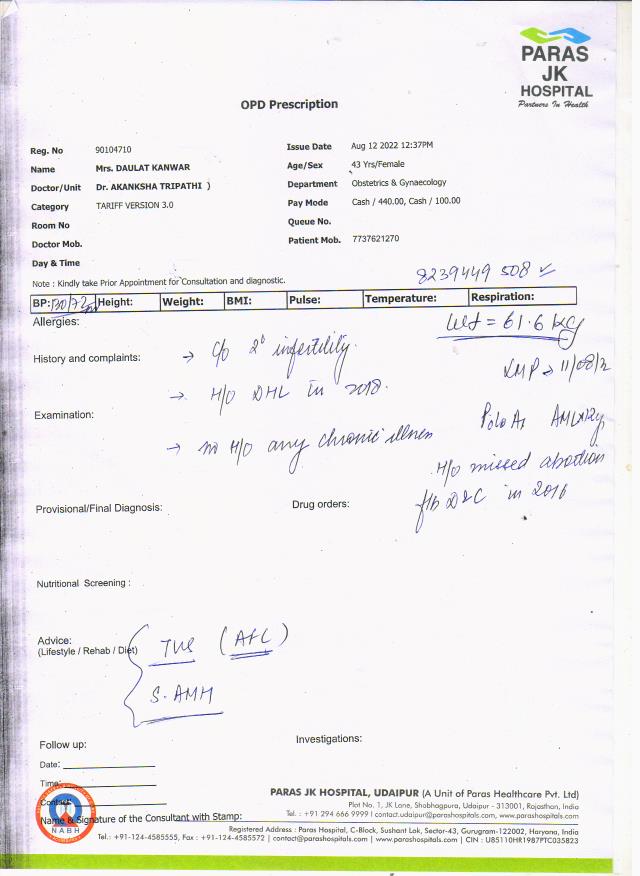 PARAS
JK
HOSPITAL
Partners In Health
OPD Prescription
Reg. No 90104710 Issue Date Aug 12 2022 12:37PM
Name Mrs. DAULAT KANWAR Age/Sex 43 Yrs/Female
Doctor/Unit Dr. AKANKSHA TRIPATHI ) Department Obstetrics & Gynaecology
Category TARIFF VERSION 3.0 Pay Mode Cash / 440.00, Cash / 100.00
Room No Queue No.
Doctor Mob. Patient Mob. 7737621270
Day & Time
8239449 508
Note : Kindly take Prior Appointment for Consultation and diagnostic.
BP: 130/72 Height: Weight: BMI: Pulse: Temperature: Respiration:
Allergies: = 61.6 kg
History and complaints: → C/o 2° infertility.
LMP → 11/08/2
→ H/O DHL in 2018.
Examination: P0L0A1
→ no H/O any chronic illness
H/o missed abortion
f/b D&C in 2016
Provisional/Final Diagnosis: Drug orders:
Nutritional Screening :
Advice: TVS (AFC)
(Lifestyle / Rehab / Diet)
S. AMH
Follow up: Investigations:
Date:
Time:
Contact:
NABH
Name & Signature of the Consultant with Stamp:
PARAS JK HOSPITAL, UDAIPUR (A Unit of Paras Healthcare Pvt. Ltd)
Plot No. 1, JK Lane, Shobhagpura, Udaipur - 313001, Rajasthan, India
Tel. : +91 294 666 9999 | contact.udaipur@parashospitals.com, www.parashospitals.com
Registered Address : Paras Hospital, C-Block, Sushant Lok, Sector-43, Gurugram-122002, Haryana, India
Tel.: +91-124-4585555, Fax : +91-124-4585572 | contact@parashospitals.com | www.parashospitals.com | CIN : U85110HR1987PTC035823